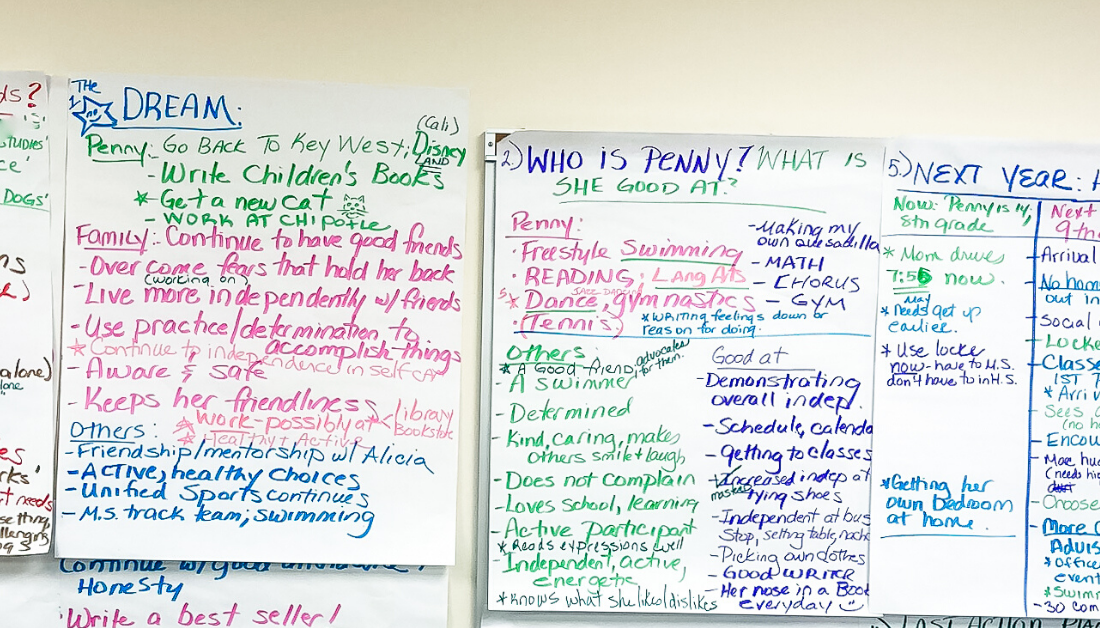 ds?
TUDIES'
ce'
DOGS'
alone)
lone
es
rks'
t needs
THE
DREAM:
(Cali)
Penny: Go BACK To Key West; Disney
LAND
- Write Children's Books
* Get a new cat
- WORK AT CHIPOTLE
Family: Continue to have good friends
- Over come fears that hold her back
(working on)
- Live more independently w/ friends
- Use practice/determination to
accomplish things
* Continue to independence in self CA
- Aware & safe
- Keeps her friendliness
* Work-possibly at < library
Bookstore
* Healthy + Active
Others:
- Friendship/mentorship w/ Alicia
- ACTIVE, healthy choices
- Unified Sports continues
- M.S. track team; swimming
Continue w/ good
Honesty
Write a best seller!
2.) WHO IS PENNY? WHAT IS
SHE GOOD AT?
Penny:
· Freestyle Swimming
· READING; Lang Arts
JAZZ DANCING
* Dance, gymnastics
· (Tennis)
- Making my
own quesadilla
- MATH
- CHORUS
- GYM
* WRITING feelings down or
reason for doing.
Others:
* A Good friend, advocates
for them.
- A swimmer
- Determined
- Kind, caring, makes
others smile + laugh
- Does not complain
- Loves school, learning
- Active Participant
* Reads expressions well
- Independent, active,
energetic
* Knows what she likes/dislikes
Good at
- Demonstrating
overall indep.
- Schedule, calenda
- getting to classes
- Increased indep at
mastered
tying shoes
- Independent at bus
Stop, setting table,
- Picking own clothes
- GOOD WRITER
- Her nose in a Book
everyday
5.) NEXT YEAR:
Now: Penny is 14,
8th grade
* Mom drives
7:55 now.
May
* needs get up
earlier.
* Use locke
now - have to M.S.
don't have to in H.S.
* Getting her
own bedroom
at home.
Next
9th
- Arrival
- No hom
out in
- Social
- Locke
- Classe
1ST
* Arriv
- Sees
(no h
- Encou
- Mae hu
(needs hi
- Choose
- More
Advis
* Office
event
* Swimm
- 30 com
Last Action Pla